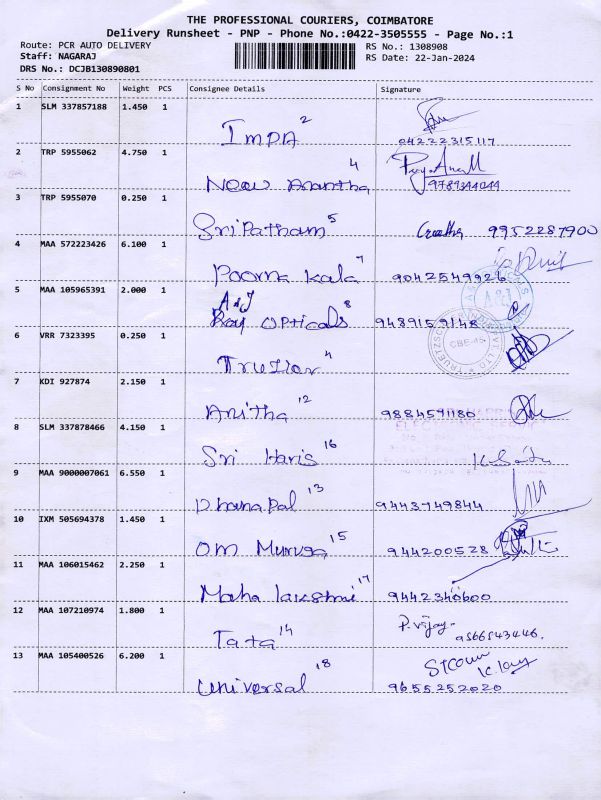 THE PROFESSIONAL COURIERS, COIMBATORE
Delivery Runsheet - PNP - Phone No.:0422-3505555 - Page No.:1
Route: PCR AUTO DELIVERY RS No.: 1308908
Staff: NAGARAJ RS Date: 22-Jan-2024
DRS No.: DCJB130890801
S No Consignment No Weight PCS Consignee Details Signature
1 SLM 337857188 1.450 1
IMPA 2 04222315117
2 TRP 5955062 4.750 1
New Anantha 4 9789344044
3 TRP 5955070 0.250 1
Sri Patham 5 9952287900
4 MAA 572223426 6.100 1
Poorna kala 7 9042549926
5 MAA 105965391 2.000 1
A & J
Ray OPticals 8 9489159148
6 VRR 7323395 0.250 1
CBE-45
4
7 KDI 927874 2.150 1
Anitha 12 9884591180
8 SLM 337878466 4.150 1
Sri Haris 16
9 MAA 9000007061 6.550 1
Dhana Pal 13 9443749844
10 IXM 505694378 1.450 1
OM Muruga 15 944200528
11 MAA 106015462 2.250 1
Maha lakshmi 17 9442340600
12 MAA 107210974 1.800 1
P. Vijay-
Tata 14 9566543446.
13 MAA 105400526 6.200 1
universal 18 9655252020